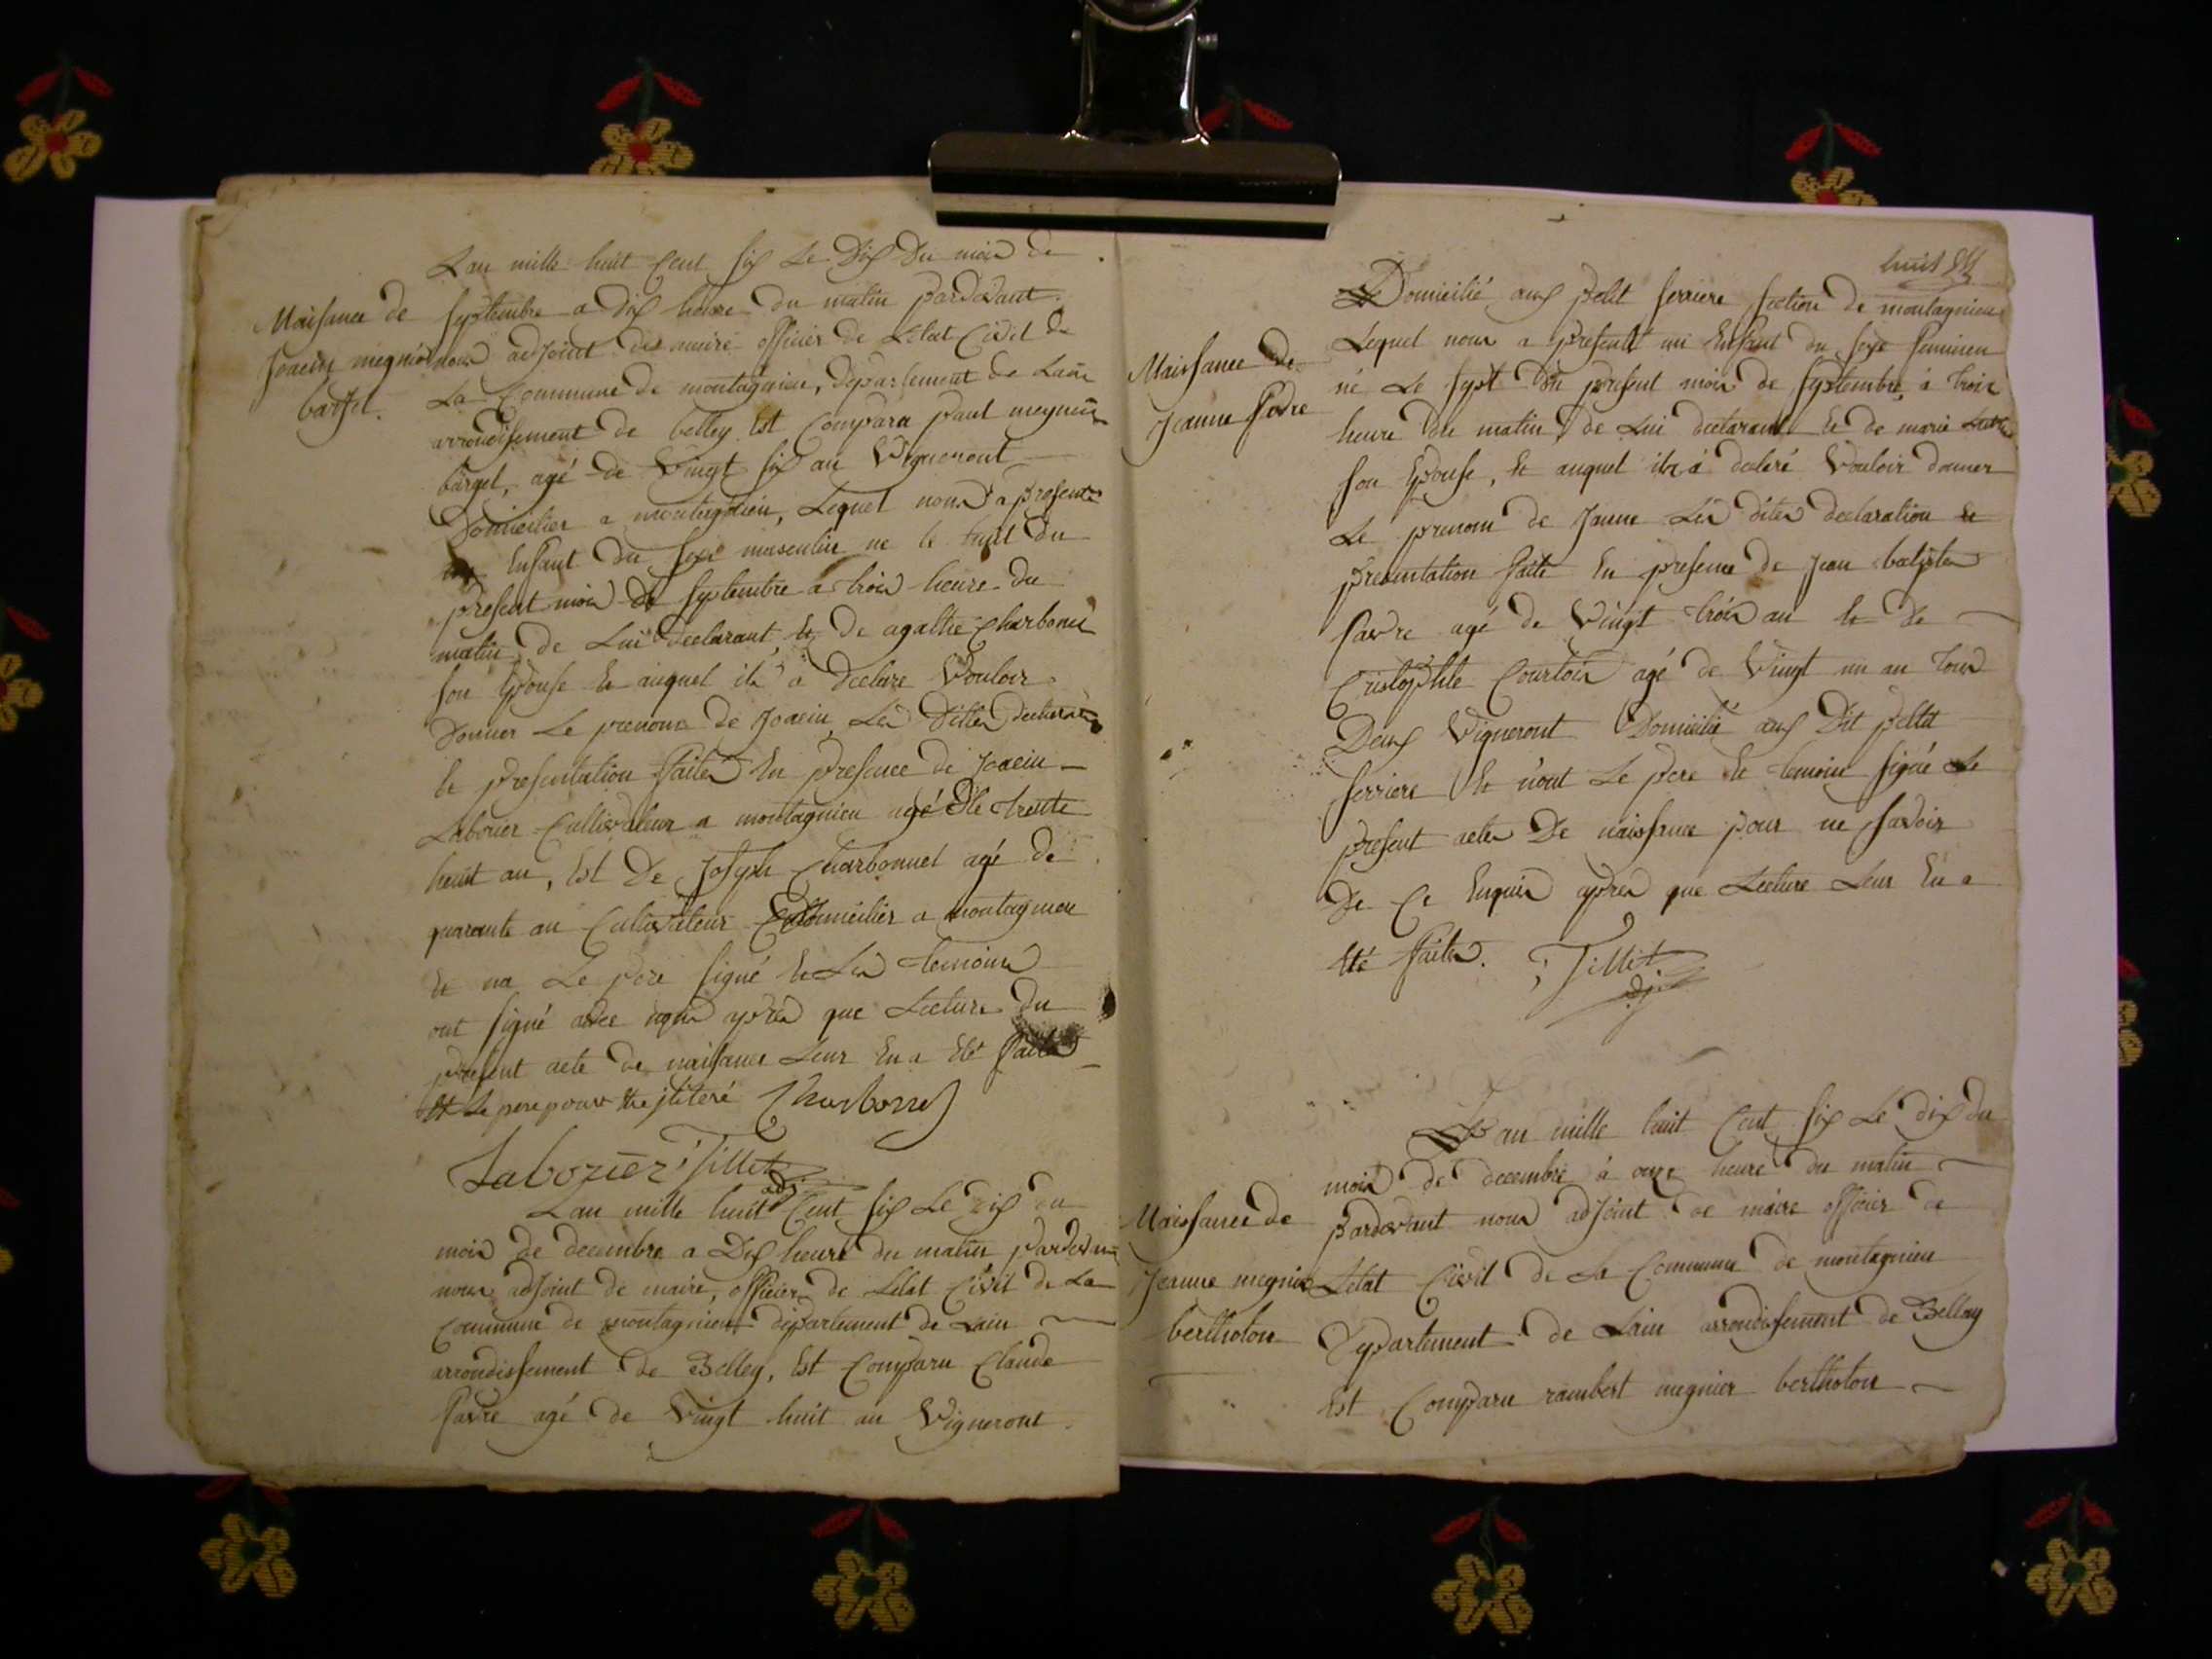 Lan mille huit Cent six Le Dix Du mois de
Naissance de
Joacin megnier
barjet.
septembre a dix heure du matin pardevant
nous adjoint de maire officier de Letat Civil de
La Commune de montagnieu, departement de Lain
arrondisement de belley Est Comparu paul megnier
barget, agé de Vingt six an Vigneront
Domicilier a montagnieu, Lequel nous a presenté
un Enfant du sexe masculin ne le huit du
present mois de septembre a trois heure du
matin de Lui declarant, Et de agathe Charbonet
son Epouse Et auquel ila a declare Vouloir
Donner Le prenom de Joacin Les dittes declaration
Et presentation faites En presence de Joacin
Laborier Cultivateur a montagnieu agé de trente
heuit an, Est De Joseph Charbonnet agé de
quarante an Cultivateur Domicilier a montagnieu
Et na Le pere signé Et Les temoins
ont signé avec nous apres que Lecture du
present acte de naissance Leur En a Eté faite
Et Le pere pour Etre jliteré Charbonnet
Laborier Tillet
adj.
Lan mille huit Cent six Le dix du
mois de decembre a Dix heure du matin pardevan
nous adjoint de maire, officier de Létat Civil de La
Commune de montagnieu departement de Lain
arrondissement de Belley, Est Comparu Claude
favre agé de Vingt huit an Vigneront
huit
Naissance de
Jeanne favre
Domicilié aux petit serriere section de montagnieu
Lequel nous a presenté un Enfant du sexe feminen
né Le sept du present mois de septembre, à trois
heure du matin, de Lui declarant Et de marie
son Epouse, Et auquel ila à declaré Vouloir donner
Le prenom de Jeanne Les dites declaration Et
presentation faite En presence de Jean batiste
favre agé de Vingt trois an Et de
Cristophle Courtois agé de Vingt un an tous
Deux Vigneront Domicilié aux Dit petit
serriere Et n'ont Le pere Et temoins signée Le
present acte De naissance pour ne savoir
De Ce Enquis apres que Lecture Leur En a
Eté faite. Tillet
adj.
Lan mille huit Cent six Le dix du
mois de decembre à onze heure du matin
Naissance de
Jeanne megnier
bertholon
pardevant nous adjoint de maire officier de
Letat Civil de La Commune de montagnieu
Departement de Lain arrondissement de Belley
Est Comparu rambert megnier bertholon